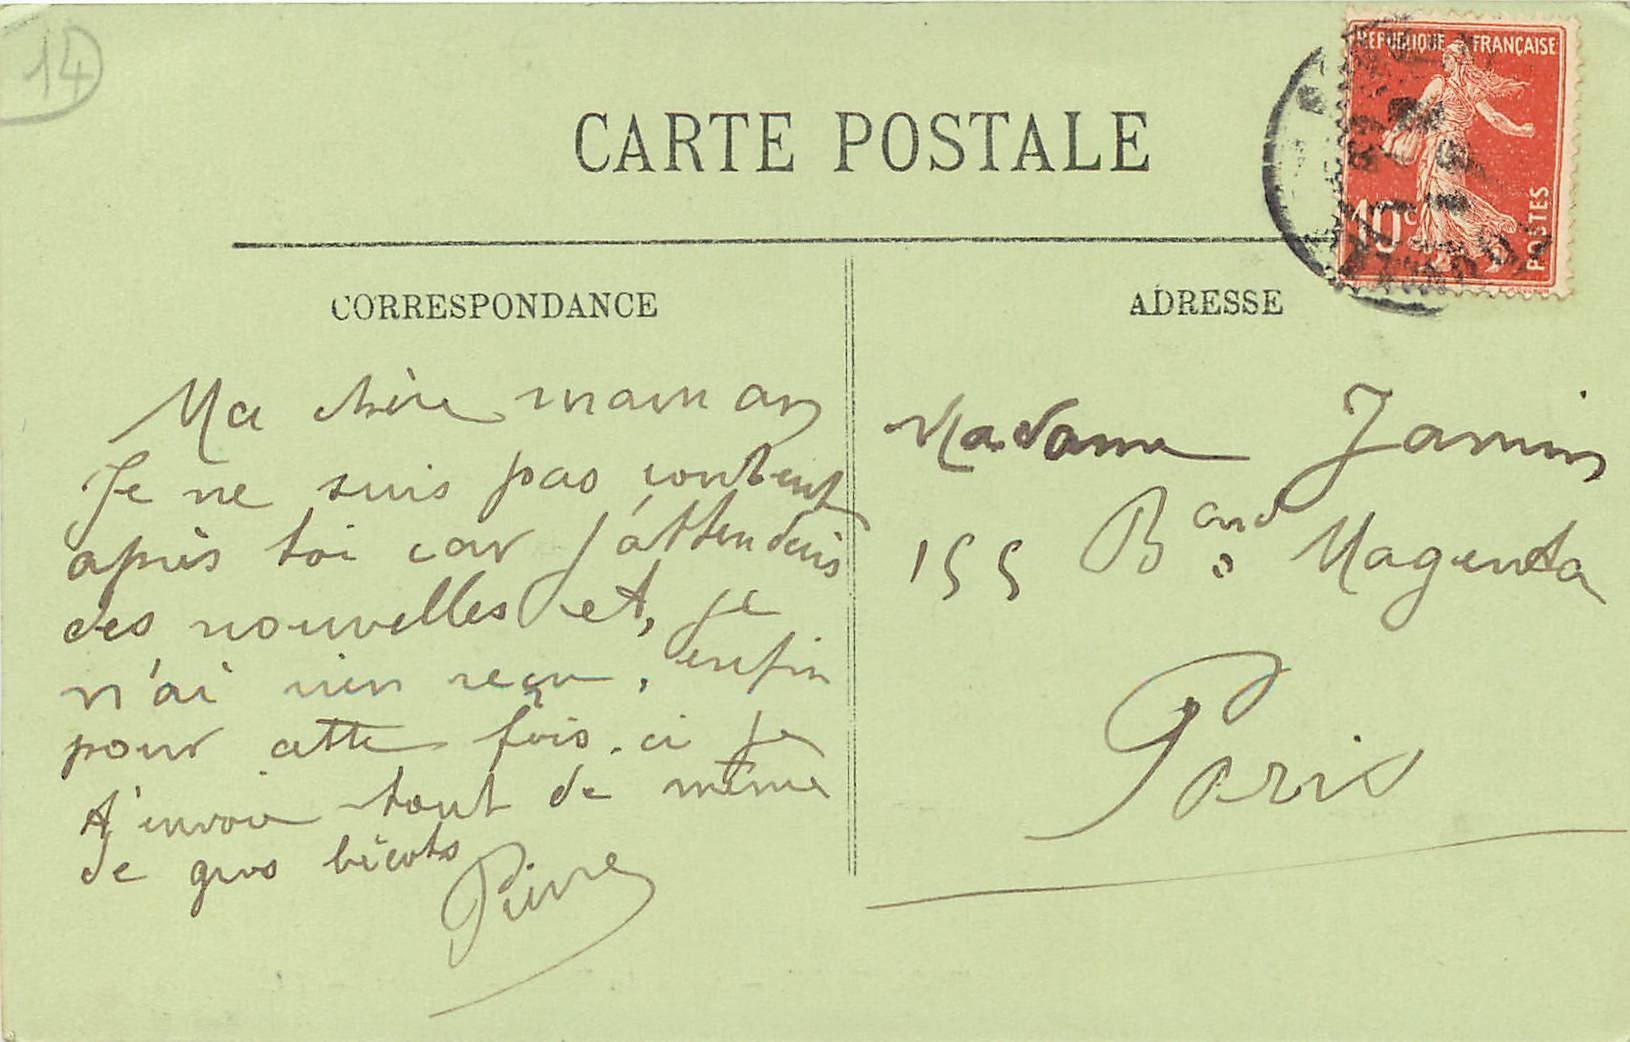 14
CARTE POSTALE
REPUBLIQUE FRANÇAISE
10c
POSTES
CORRESPONDANCE
Ma chère maman
Je ne suis pas content
après toi car j'attendais
des nouvelles et, je
n'ai rien reçu, enfin
pour cette fois-ci je
t'envoie tout de même
de gros bécots
Pierre
ADRESSE
Madame Jamin
155 Bard Magenta
Paris